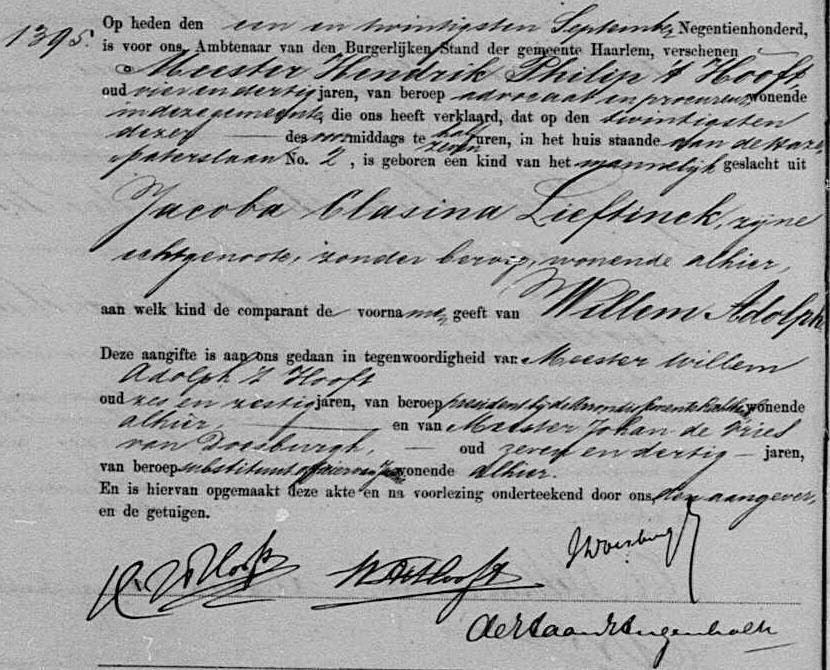 1395.
Op heden den een en twintigsten September Negentienhonderd,
is voor ons, Ambtenaar van den Burgerlijken Stand der gemeente Haarlem, verschenen
Meester Hendrik Philip 't Hooft,
oud vier en dertig jaren, van beroep advocaat en procureur, wonende
in deze gemeente, die ons heeft verklaard, dat op den twintigsten
dezer des voormiddags te half zeven uren, in het huis staande aan de Haze
paterslaan No. 2, is geboren een kind van het mannelijk geslacht uit
Jacoba Clasina Lieftinck, zijne
echtgenoote, zonder beroep, wonende alhier,
aan welk kind de comparant de voornamen geeft van Willem Adolph
Deze aangifte is aan ons gedaan in tegenwoordigheid van Meester Willem
Adolph 't Hooft
oud zes en zestig jaren, van beroep president bij de Arrondissements Rechtbank, wonende
alhier, en van Meester Johan de Vries
van Doesburgh, oud zeven en dertig jaren,
van beroep substituut officier van Justitie wonende alhier.
En is hiervan opgemaakt deze akte en na voorlezing onderteekend door ons, den aangever,
en de getuigen.
H. P. 't Hooft W A 't Hooft